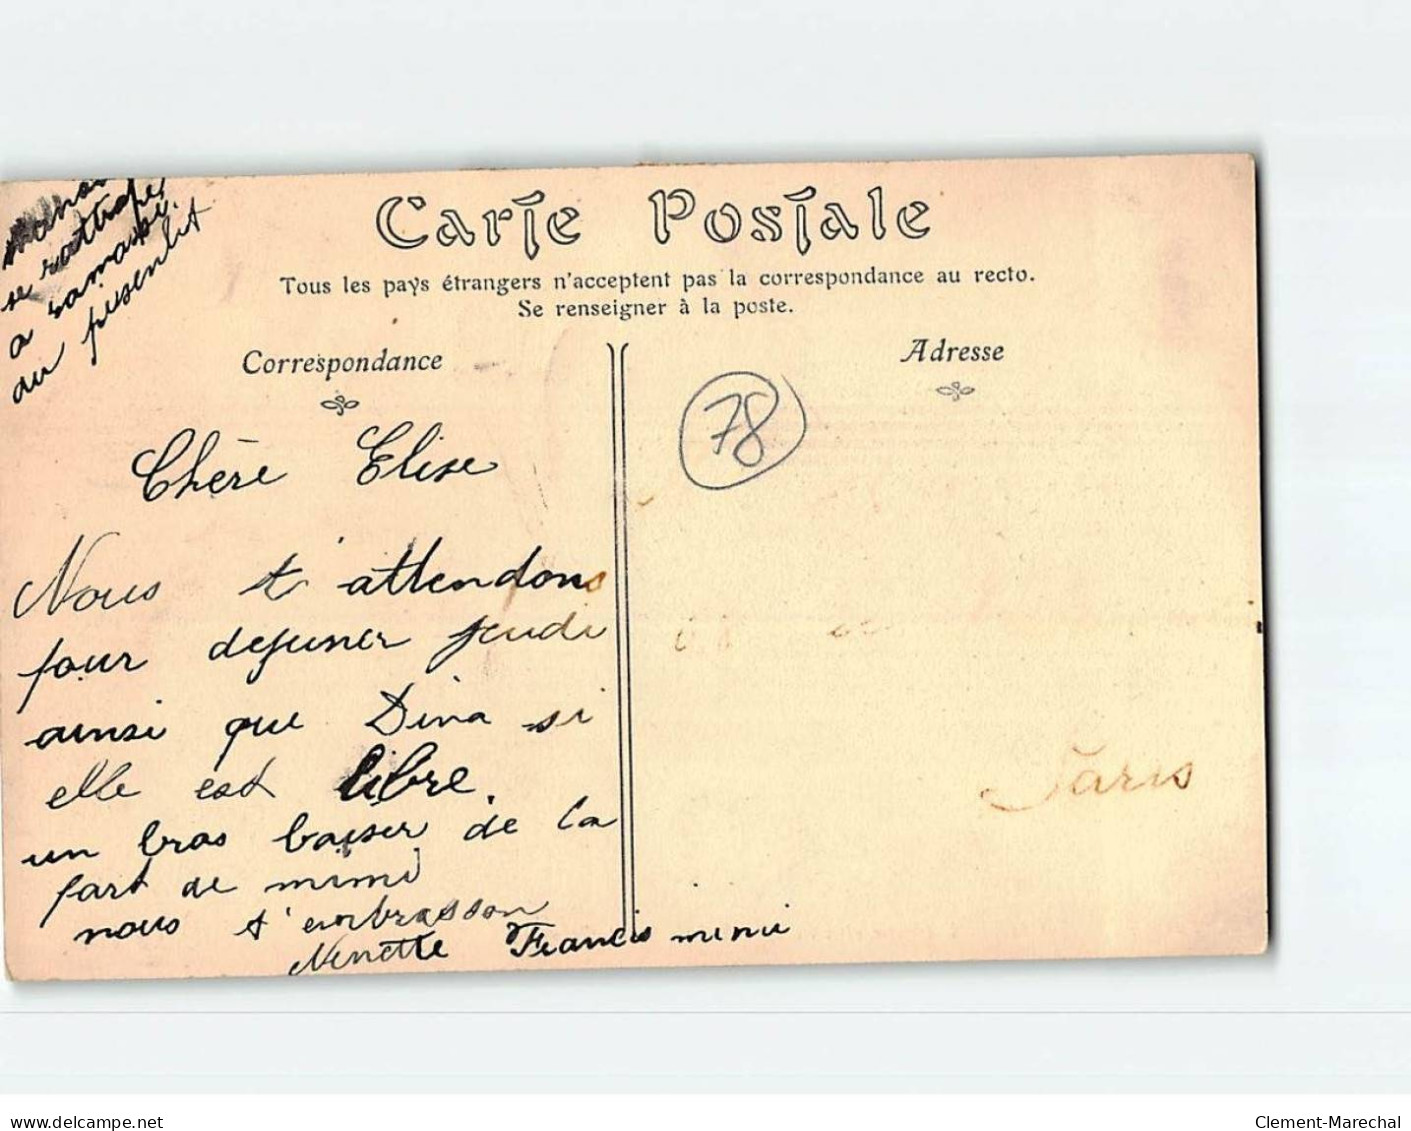 se rattrape
a
au
Carte Postale
Tous les pays étrangers n'acceptent pas la correspondance au recto.
Se renseigner à la poste.
Correspondance
Adresse
78
Chère Elise
Nous t'attendons
pour dejuner jeudi
ainsi que Dina si
elle est libre.
un bras baiser de la
part de mimi
nous t'embrasson
Ninette Francis mimi
Paris
www.delcampe.net
Clement-Marechal